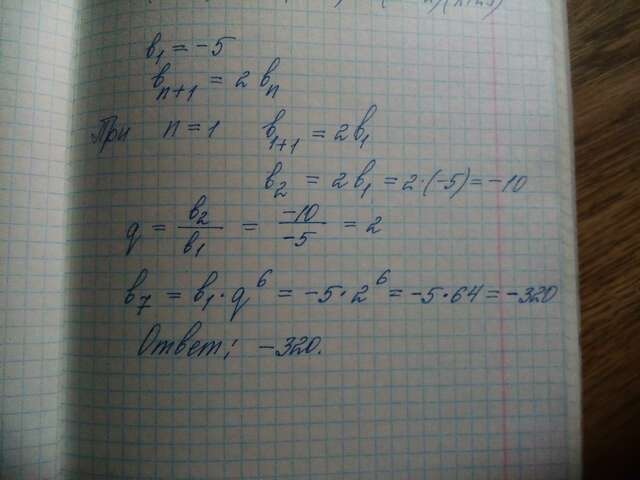 b₁ = -5
bₙ₊₁ = 2 bₙ
При n = 1 b₁₊₁ = 2b₁
b₂ = 2 b₁ = 2·(-5) = -10
q = b₂/b₁ = -10/-5 = 2
b₇ = b₁·q⁶ = -5·2⁶ = -5·64 = -320
Ответ: -320.